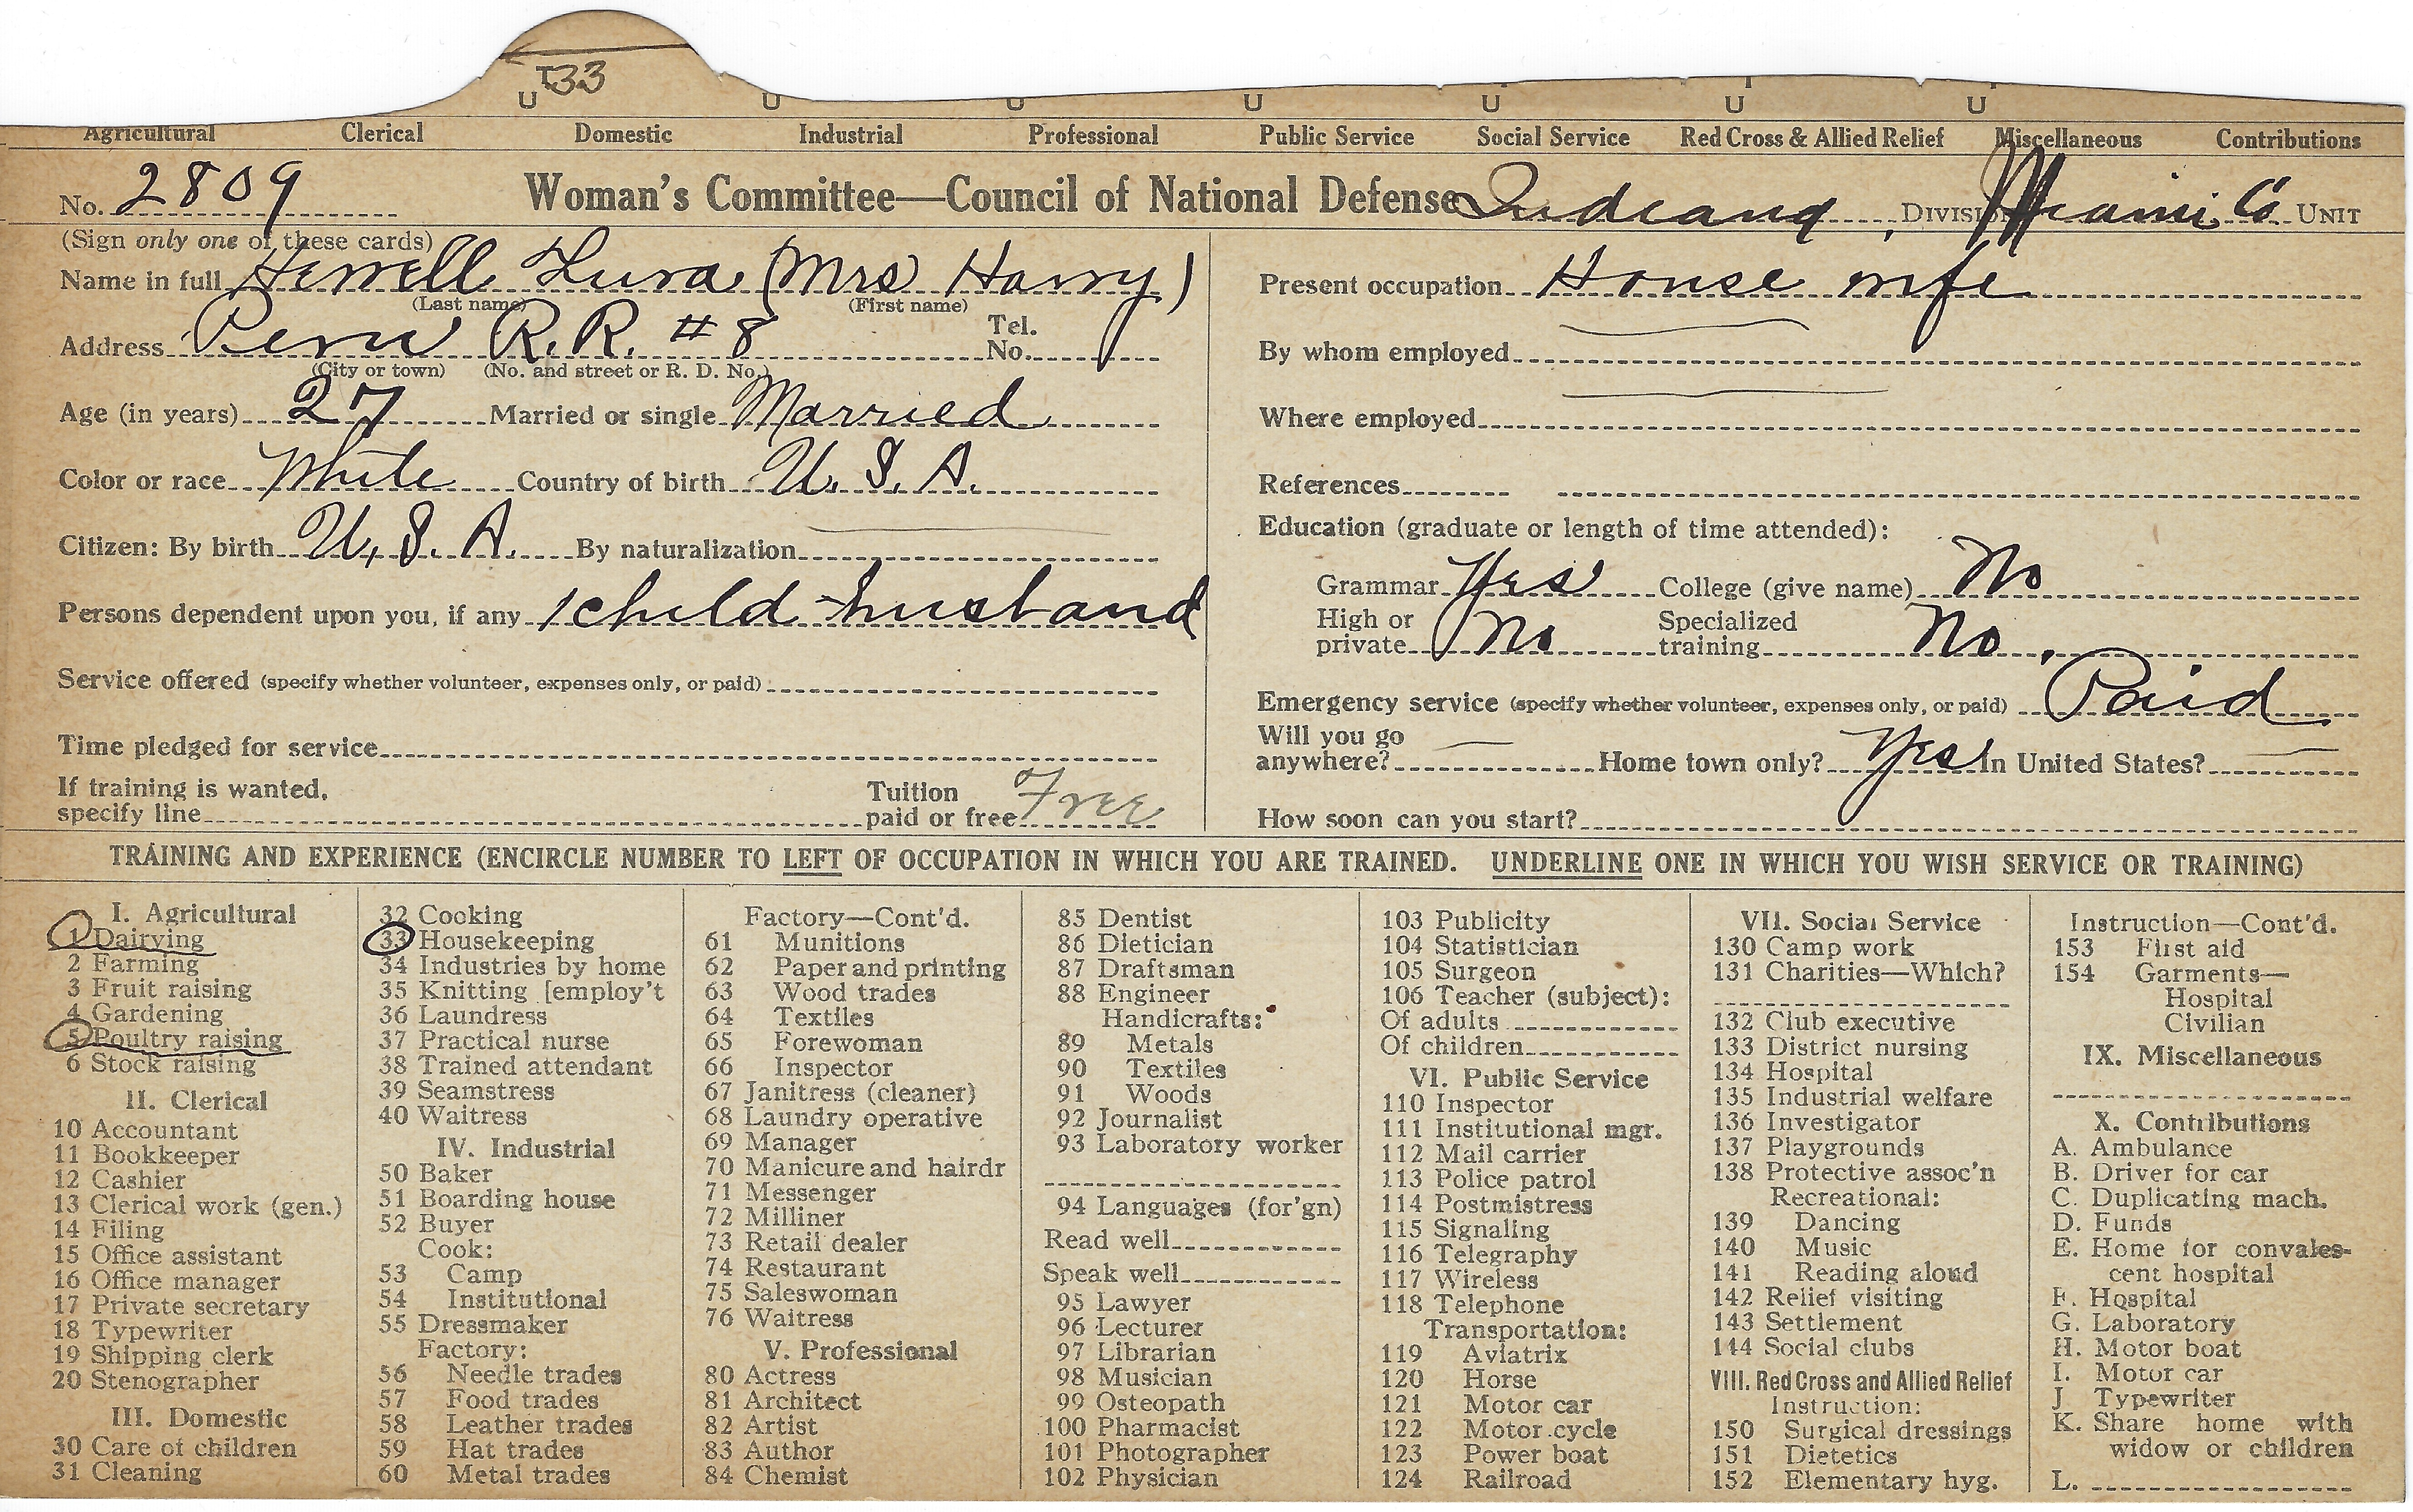 33
U U U U U U U
Agricultural Clerical Domestic Industrial Professional Public Service Social Service Red Cross & Allied Relief Miscellaneous Contributions
No. 2809 Woman's Committee—Council of National Defense Indiana, DIVISION Miami Co UNIT
(Sign only one of these cards)
Name in full Herrell Lura (Mrs Harry)
(Last name) (First name)
Address Peru R.R. #8 Tel. No.
(City or town) (No. and street or R. D. No.)
Age (in years) 27 Married or single Married
Color or race White Country of birth U.S.A.
Citizen: By birth U.S.A. By naturalization
Persons dependent upon you, if any 1 child - husband
Service offered (specify whether volunteer, expenses only, or paid)
Time pledged for service
If training is wanted, specify line Tuition paid or free Free
Present occupation House wife
By whom employed
Where employed
References
Education (graduate or length of time attended):
Grammar Yes College (give name) No
High or private No Specialized training No.
Emergency service (specify whether volunteer, expenses only, or paid) Paid
Will you go anywhere? — Home town only? Yes In United States? —
How soon can you start?
TRAINING AND EXPERIENCE (ENCIRCLE NUMBER TO LEFT OF OCCUPATION IN WHICH YOU ARE TRAINED. UNDERLINE ONE IN WHICH YOU WISH SERVICE OR TRAINING)
I. Agricultural
1 Dairying
2 Farming
3 Fruit raising
4 Gardening
5 Poultry raising
6 Stock raising
II. Clerical
10 Accountant
11 Bookkeeper
12 Cashier
13 Clerical work (gen.)
14 Filing
15 Office assistant
16 Office manager
17 Private secretary
18 Typewriter
19 Shipping clerk
20 Stenographer
III. Domestic
30 Care of children
31 Cleaning
32 Cooking
33 Housekeeping
34 Industries by home
35 Knitting [employ't
36 Laundress
37 Practical nurse
38 Trained attendant
39 Seamstress
40 Waitress
IV. Industrial
50 Baker
51 Boarding house
52 Buyer
Cook:
53 Camp
54 Institutional
55 Dressmaker
Factory:
56 Needle trades
57 Food trades
58 Leather trades
59 Hat trades
60 Metal trades
Factory—Cont'd.
61 Munitions
62 Paper and printing
63 Wood trades
64 Textiles
65 Forewoman
66 Inspector
67 Janitress (cleaner)
68 Laundry operative
69 Manager
70 Manicure and hairdr
71 Messenger
72 Milliner
73 Retail dealer
74 Restaurant
75 Saleswoman
76 Waitress
V. Professional
80 Actress
81 Architect
82 Artist
83 Author
84 Chemist
85 Dentist
86 Dietician
87 Draftsman
88 Engineer
Handicrafts:
89 Metals
90 Textiles
91 Woods
92 Journalist
93 Laboratory worker
94 Languages (for'gn)
Read well
Speak well
95 Lawyer
96 Lecturer
97 Librarian
98 Musician
99 Osteopath
100 Pharmacist
101 Photographer
102 Physician
103 Publicity
104 Statistician
105 Surgeon
106 Teacher (subject):
Of adults
Of children
VI. Public Service
110 Inspector
111 Institutional mgr.
112 Mail carrier
113 Police patrol
114 Postmistress
115 Signaling
116 Telegraphy
117 Wireless
118 Telephone
Transportation:
119 Aviatrix
120 Horse
121 Motor car
122 Motor cycle
123 Power boat
124 Railroad
VII. Social Service
130 Camp work
131 Charities—Which?
132 Club executive
133 District nursing
134 Hospital
135 Industrial welfare
136 Investigator
137 Playgrounds
138 Protective assoc'n
Recreational:
139 Dancing
140 Music
141 Reading aloud
142 Relief visiting
143 Settlement
144 Social clubs
VIII. Red Cross and Allied Relief
Instruction:
150 Surgical dressings
151 Dietetics
152 Elementary hyg.
Instruction—Cont'd.
153 First aid
154 Garments—
Hospital
Civilian
IX. Miscellaneous
X. Contributions
A. Ambulance
B. Driver for car
C. Duplicating mach.
D. Funds
E. Home for convales-
cent hospital
F. Hospital
G. Laboratory
H. Motor boat
I. Motor car
J Typewriter
K. Share home with
widow or children
L.